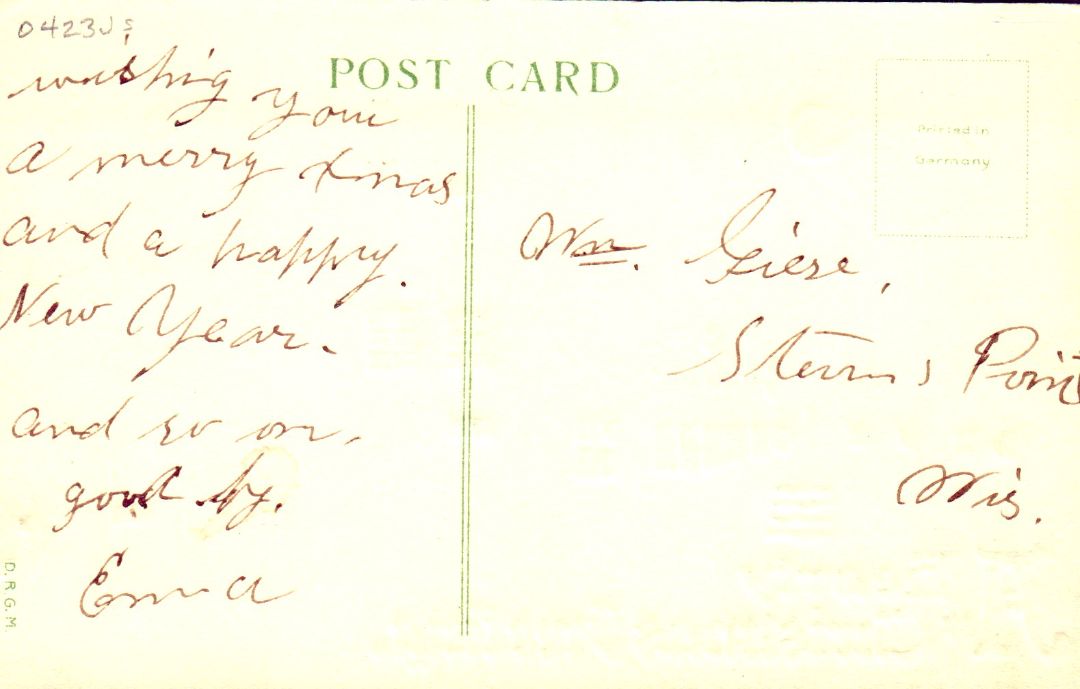 0423Js
POST CARD
wishing you
a merry Xmas
and a happy.
New Year.
and so on.
good by.
Emma
Printed in
Germany
Wm. Giese,
Stevens Point
Wis.
D.R.G.M.